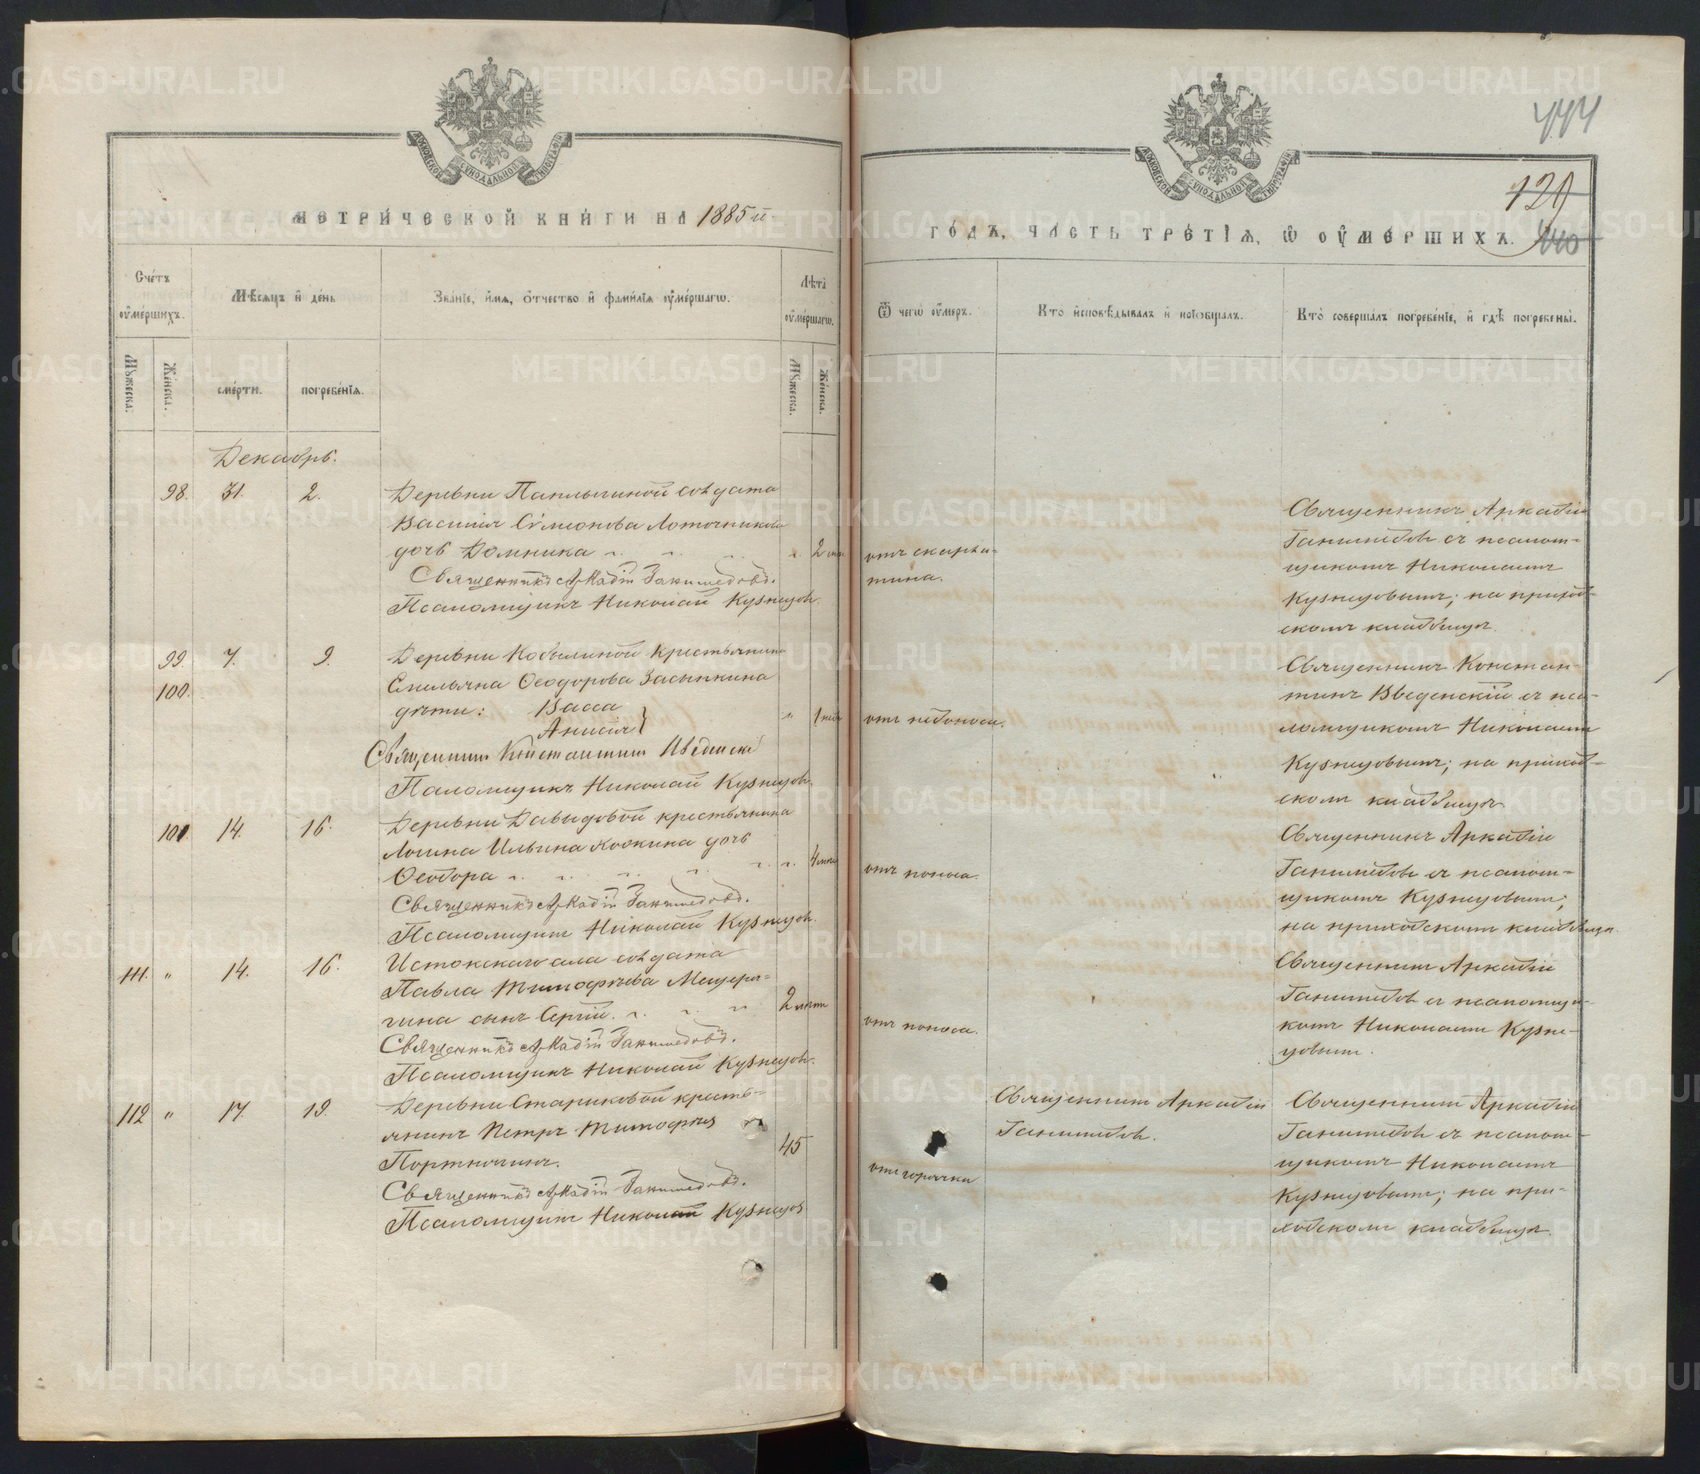 МЕТРИ́ЧЕСКОЙ КНИ́ГИ НА 1885й
Сче́тъ ᲂу҆ме́ршихъ.
Мѣ́сяцъ и҆ де́нь
Зва́нїе, и҆́мя, ѻ҆́тчество и҆ фами́лїя ᲂу҆ме́ршагѡ.
Лѣ́та ᲂу҆ме́ршагѡ.
Мꙋ́жеска.
Же́нска.
сме́рти.
погребе́нїя.
Мꙋ́жеска.
Же́нска.
Декабрь.
98. 31. 2. Деревни солдата
Василія Симеонова Лоточникова
дочь Домника " " " " 2
Священникъ Аркадій Ганимедовъ.
Псаломщикъ Николай Кузнецов.
99. 7. 9. Деревни Кобылиной крестьянина
100. Емельяна Ѳеодорова Засыпкина
дѣти: Васса
Анисія } "
Священник Константин Введенскі
Псаломщикъ Николай Кузнецов.
101. 14. 16. Деревни Давыдовой крестьянина
Логина Ильина дочь
Ѳеодора " " " " " "
Священникъ Аркадій Ганимедовъ.
Псаломщикъ Николай Кузнецов.
111. " 14. 16. Истокскаго села солдата
Павла Тимофѣева Мещеря-
гина сынъ Сергій. " " " 2
Священникъ Аркадій Ганимедовъ.
Псаломщикъ Николай Кузнецов.
112 " 17 19. Деревни Стариковой кресть-
янинъ Петръ Тимофѣев
Портнягинъ. 45
Священникъ Аркадій Ганимедовъ.
Псаломщикъ Николай Кузнецов
444
129
440
ГО́ДЪ, ЧА́СТЬ ТРЕ́ТЇЯ, Ѡ҆ ОУ҆МЕ́РШИХЪ.
Ѿ чегѡ̀ ᲂу҆́меръ.
Кто̀ и҆сповѣ́дывалъ и҆ прїѡбща́лъ.
Кто̀ соверша́лъ погребе́нїе, и҆ гдѣ̀ погребены̀.
отъ скарла-
тина.
Священникъ Аркадій
Ганимедовъ съ псалом-
щикомъ Николаемъ
Кузнецовымъ; на приход-
скомъ кладбищѣ.
отъ недоноси.
Священникъ Констан-
тинъ Введенскій съ пса-
ломщикомъ Николаемъ
Кузнецовымъ; на приход-
скомъ кладбищѣ.
отъ поноса.
Священникъ Аркадій
Ганимедовъ съ псалом-
щикомъ Кузнецовымъ;
на приходскомъ кладбищѣ.
отъ поноса.
Священникъ Аркадій
Ганимедовъ съ псаломщи-
комъ Николаемъ Кузне-
цовымъ.
отъ горячки
Священникъ Аркадій
Ганимедовъ.
Священникъ Аркадій
Ганимедовъ съ псалом-
щикомъ Николаемъ
Кузнецовымъ; на при-
ходскомъ кладбищѣ.
METRIKI.GASO-URAL.RU